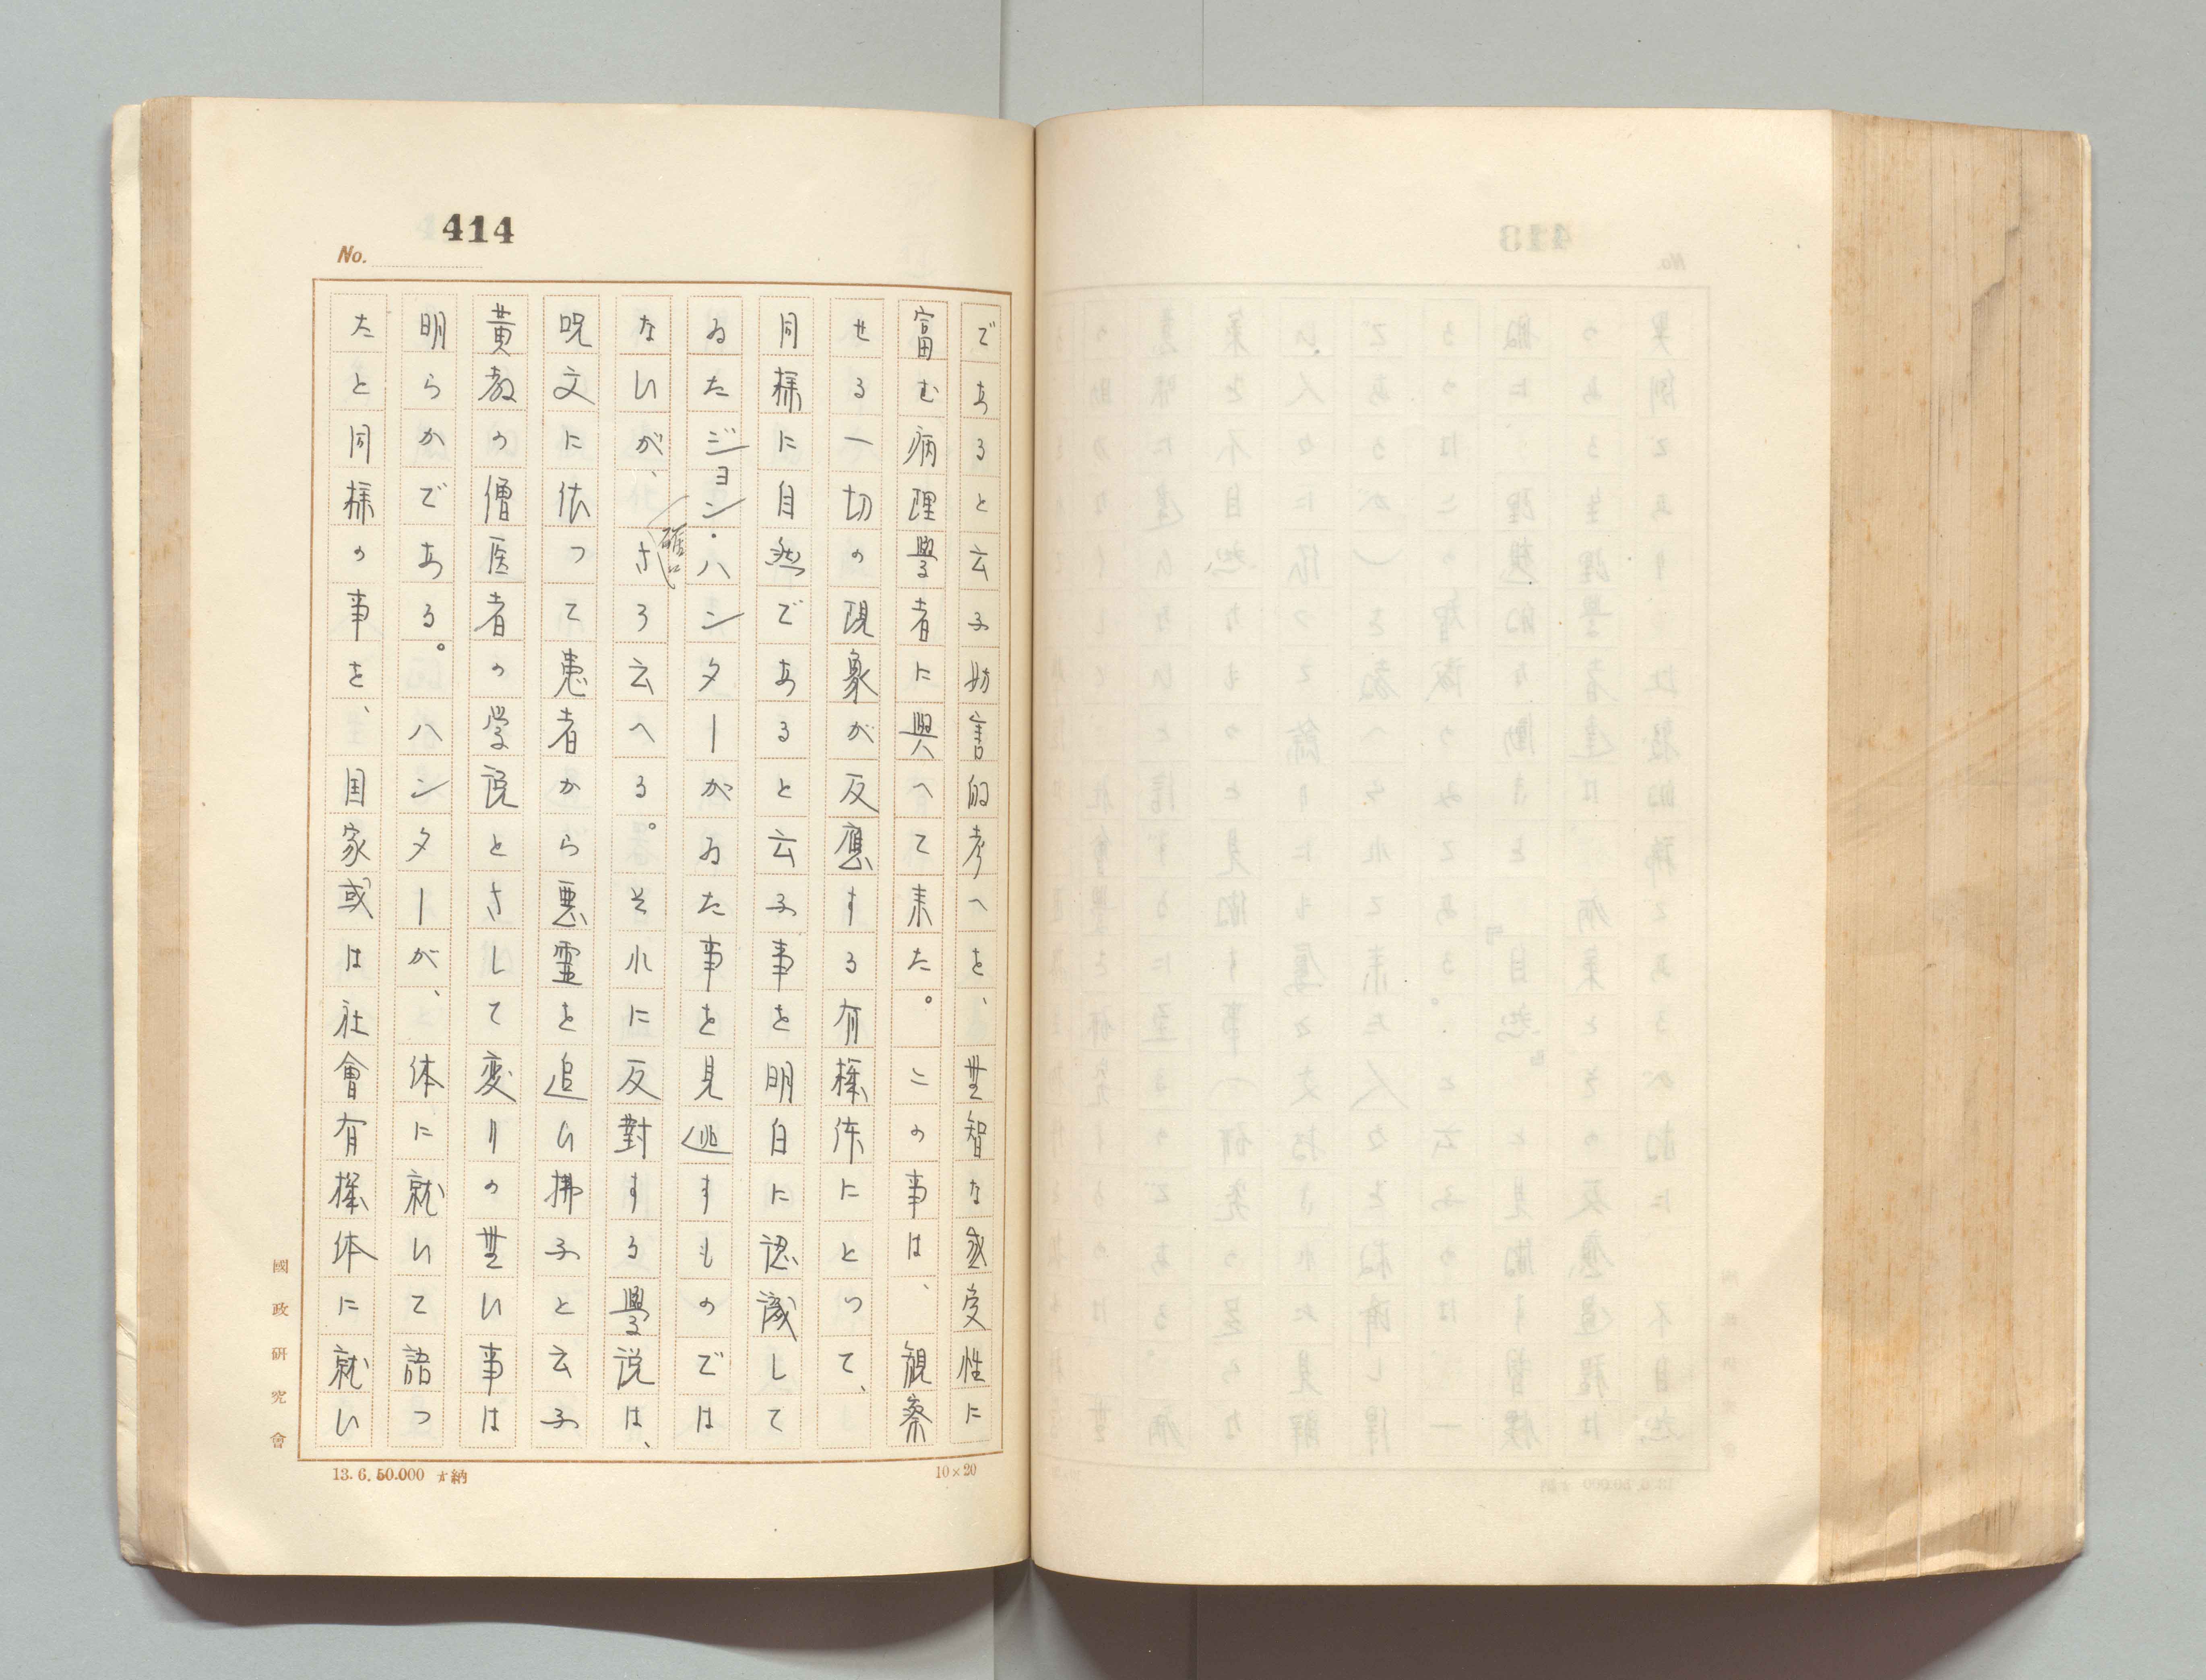 414
No.
であると云ふ妨害的考へを、無智な感受性に
富む病理學者に與へて来た。この事は、観察
せる一切の現象が反應する有様体にとって、
同様に自然であると云ふ事を明白に認識して
ゐたジョン・ハンターがゐた事を見逃すものでは
ないが、さう云へる。それに反對する學説は、
呪文に依って患者から悪霊を追ひ拂ふと云ふ
黄教の僧医者の学説とさして変りの無い事は
明らかである。ハンターが、体に就いて語つ
たと同様の事を、国家或は社會有様体に就い
國政研究會
13.6.50.000 納
10×20